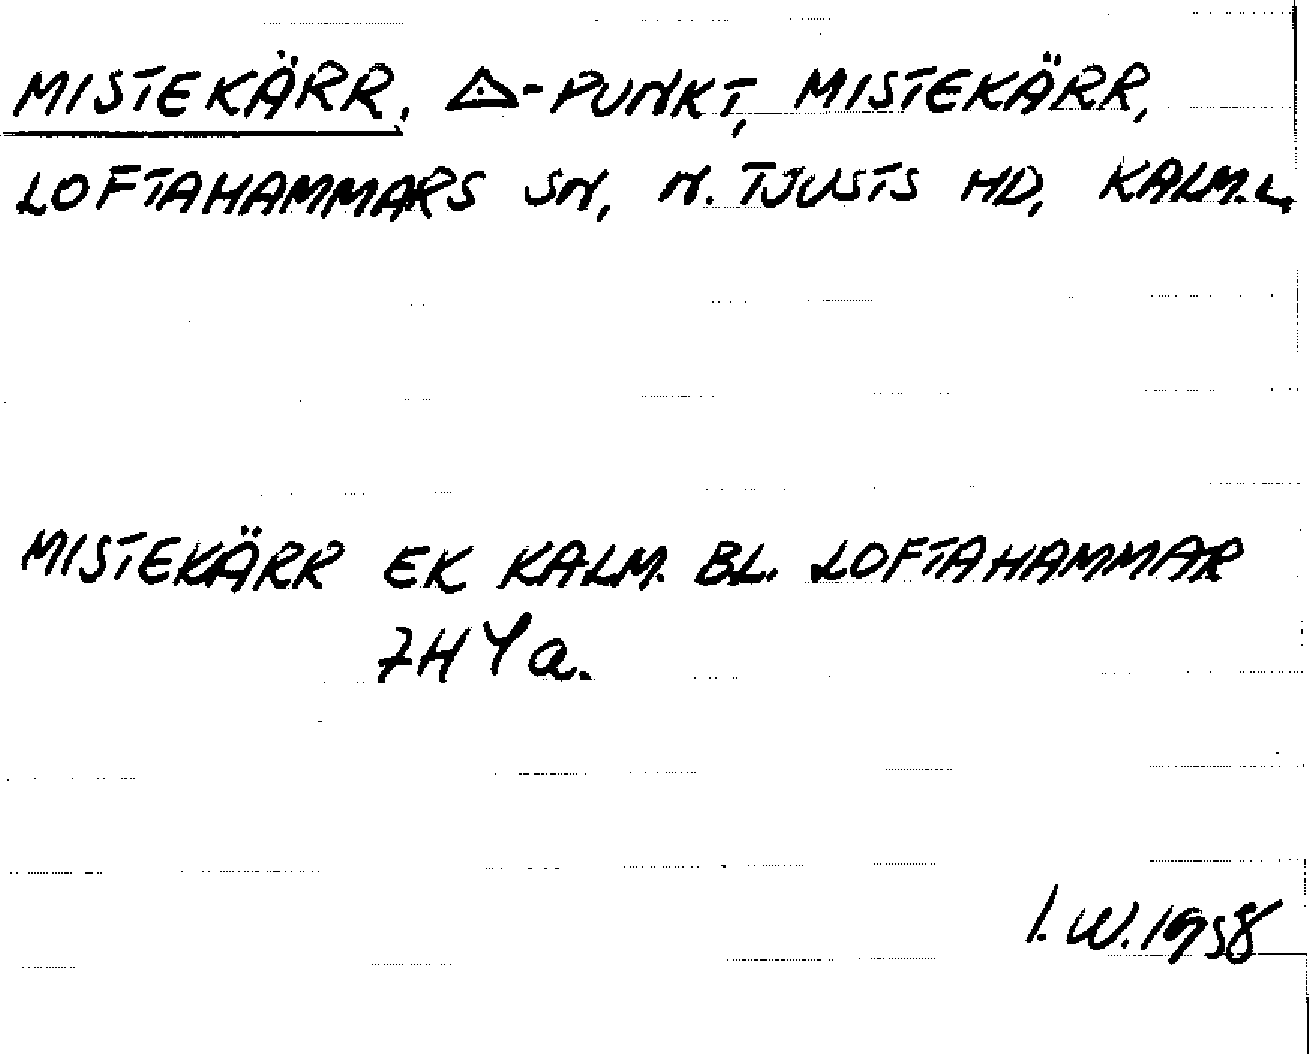 MISTEKÄRR, △-PUNKT, MISTEKÄRR,
LOFTAHAMMARS SN, N. TJUSTS HD, KALM.L.
MISTEKÄRR EK KALM. BL. LOFTAHAMMAR
7H4a.
I.W.1958